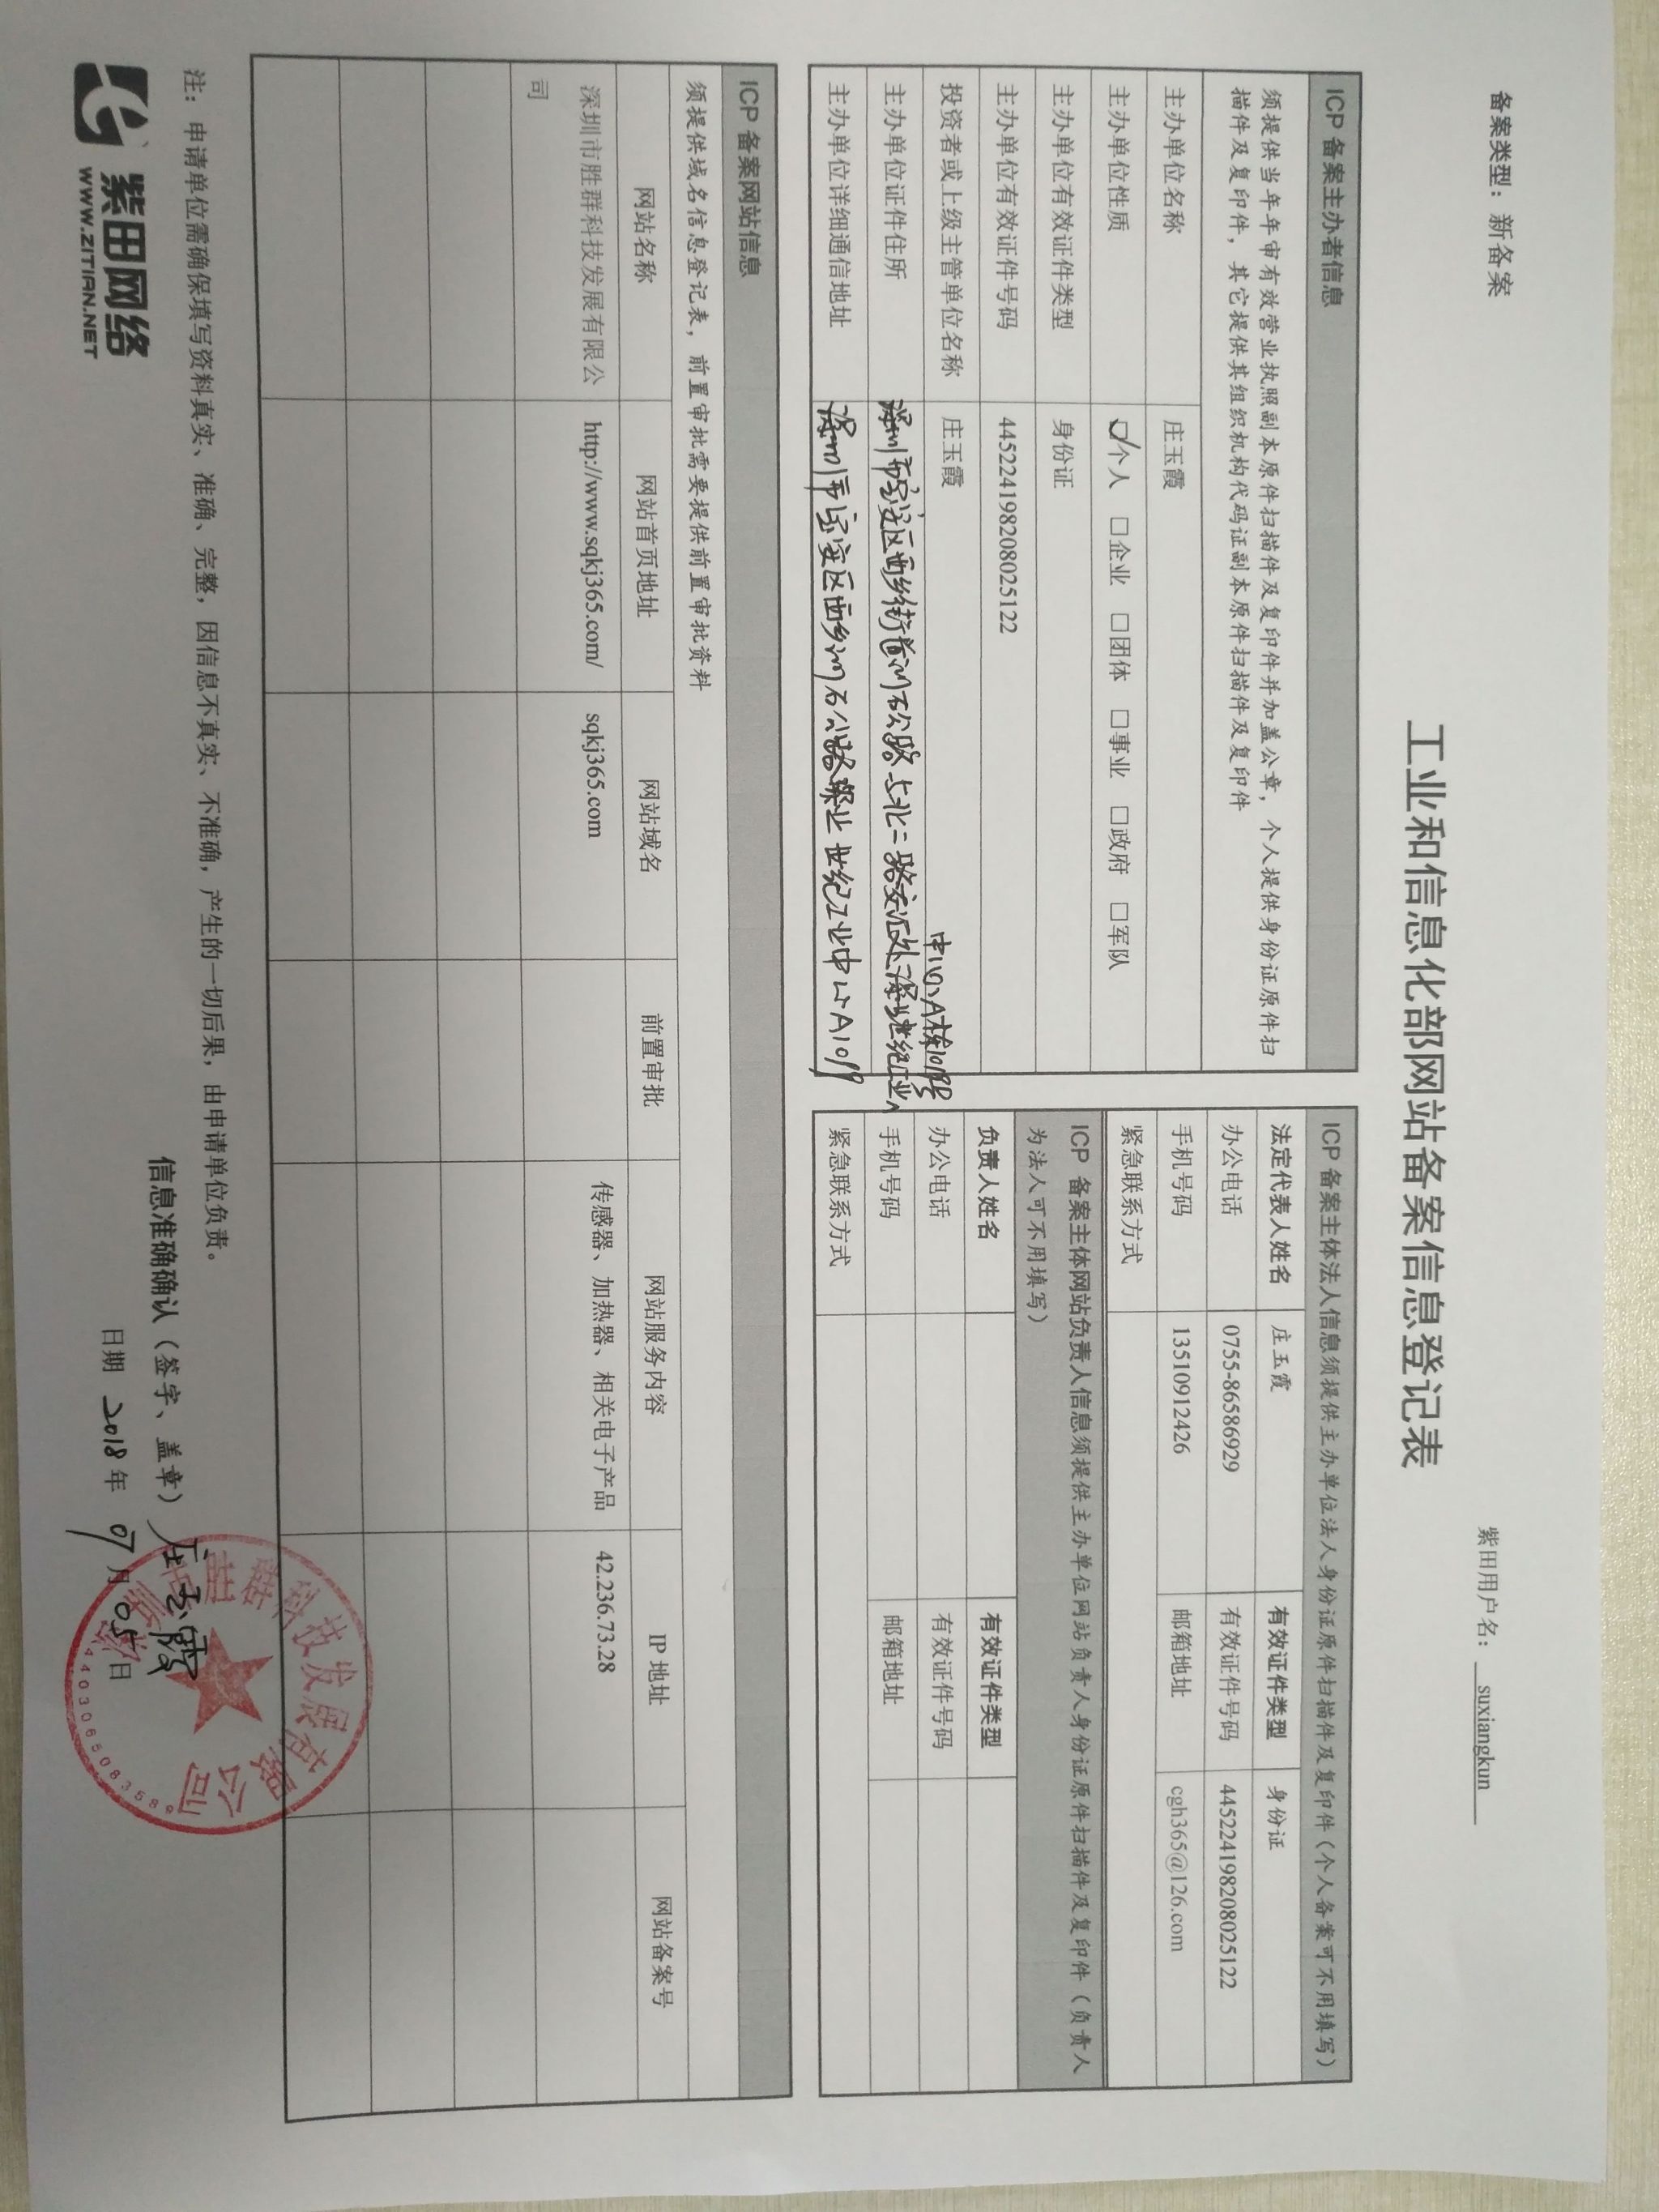 备案类型：新备案
紫田用户名： suxiangkun
工业和信息化部网站备案信息登记表
ICP 备案主办者信息
须提供当年年审有效营业执照副本原件扫描件及复印件并加盖公章，个人提供身份证原件扫
描件及复印件，其它提供其组织机构代码证副本原件扫描件及复印件
主办单位名称 庄玉霞
主办单位性质 ☑个人 □企业 □团体 □事业 □政府 □军队
主办单位有效证件类型 身份证
主办单位有效证件号码 445224198208025122
投资者或上级主管单位名称 庄玉霞
主办单位证件住所 深圳市宝安区西乡街道洲石公路与北二路交汇处深业世纪工业
中心A栋1019号
主办单位详细通信地址 深圳市宝安区西乡洲石公路深业世纪工业中心A1019
ICP 备案主体法人信息须提供主办单位法人身份证原件扫描件及复印件（个人备案可不用填写）
法定代表人姓名 庄玉霞 有效证件类型 身份证
办公电话 0755-86586929 有效证件号码 445224198208025122
手机号码 13510912426 邮箱地址 cgh365@126.com
紧急联系方式
ICP 备案主体网站负责人信息须提供主办单位网站负责人身份证原件扫描件及复印件（负责人
为法人可不用填写）
负责人姓名 有效证件类型
办公电话 有效证件号码
手机号码 邮箱地址
紧急联系方式
ICP 备案网站信息
须提供域名信息登记表，前置审批需要提供前置审批资料
网站名称 网站首页地址 网站域名 前置审批 网站服务内容 IP 地址 网站备案号
深圳市胜群科技发展有限公 http://www.sqkj365.com/ sqkj365.com 传感器、加热器、相关电子产品 42.236.73.28
司
注：申请单位需确保填写资料真实、准确、完整，因信息不真实、不准确，产生的一切后果，由申请单位负责。
信息准确确认（签字、盖章） 庄玉霞
日期 2018 年 07 月 05 日
深圳市胜群科技发展有限公司
4403065083589
紫田网络
WWW.ZITIAN.NET